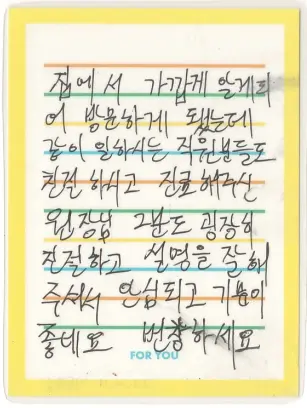 집에서 가깝게 알게되
어 방문하게 됐는데
같이 일하시는 직원분들도
친절하시고 진료해주신
원장님 그분도 굉장히
친절하고 설명을 잘해
주셔서 안심되고 기분이
좋네요 번창하세요
FOR YOU